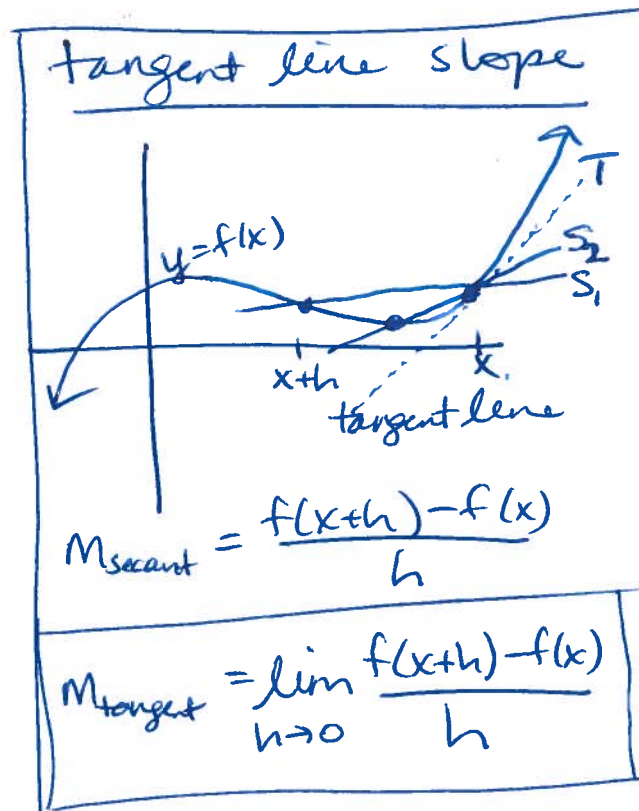 tangent line slope
T
y=f(x)
S₂
S₁
x+h
x
tangent line
m_secant = \frac{f(x+h)-f(x)}{h}
m_tangent = \lim_{h→0} \frac{f(x+h)-f(x)}{h}